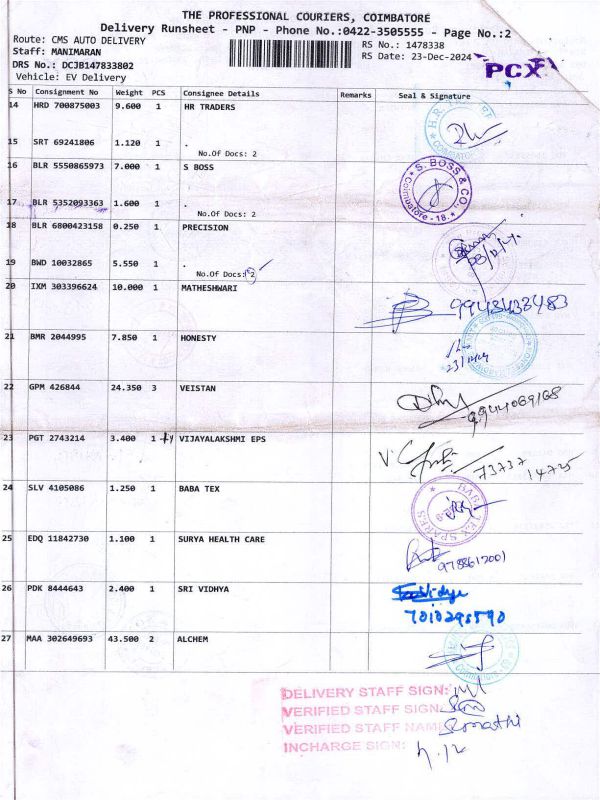 THE PROFESSIONAL COURIERS, COIMBATORE
Delivery Runsheet - PNP - Phone No.:0422-3505555 - Page No.:2
Route: CMS AUTO DELIVERY
Staff: MANIMARAN
DRS No.: DCJB147833802
Vehicle: EV Delivery
RS No.: 1478338
RS Date: 23-Dec-2024
PCX
S No Consignment No Weight PCS Consignee Details Remarks Seal & Signature
14 HRD 700875003 9.600 1 HR TRADERS
15 SRT 69241806 1.120 1 .
No.Of Docs: 2
16 BLR 5550865973 7.000 1 S BOSS
S. BOSS & CO.
Coimbatore - 18.
17 BLR 5352093363 1.600 1 .
No.Of Docs: 2
18 BLR 6800423158 0.250 1 PRECISION
19 BWD 10032865 5.550 1 .
No.Of Docs: 2
20 IXM 303396624 10.000 1 MATHESHWARI
9943433483
21 BMR 2044995 7.850 1 HONESTY
22 GPM 426844 24.350 3 VEISTAN
9944069168
23 PGT 2743214 3.400 1 VIJAYALAKSHMI EPS
73737 14725
24 SLV 4105086 1.250 1 BABA TEX
25 EDQ 11842730 1.100 1 SURYA HEALTH CARE
26 PDK 8444643 2.400 1 SRI VIDHYA
7010295590
27 MAA 302649693 43.500 2 ALCHEM
DELIVERY STAFF SIGN:
VERIFIED STAFF SIGN:
VERIFIED STAFF NAME:
INCHARGE SIGN: